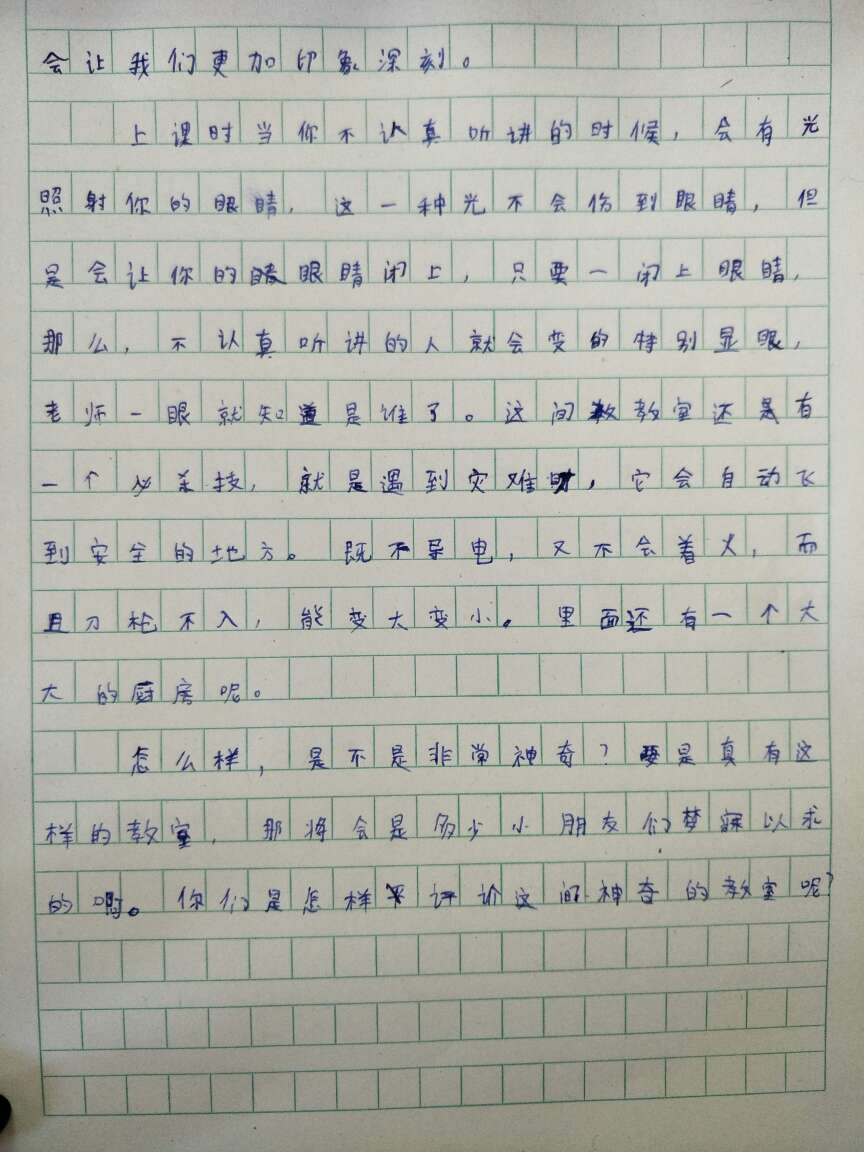 会让我们更加印象深刻。
上课时当你不认真听讲的时候，会有光
照射你的眼睛，这一种光不会伤到眼睛，但
是会让你的眼睛闭上，只要一闭上眼睛，
那么，不认真听讲的人就会变的特别显眼，
老师一眼就知道是谁了。这间教室还是有
一个必杀技，就是遇到灾难时，它会自动飞
到安全的地方。既不导电，又不会着火，而
且刀枪不入，能变大变小。里面还有一个大
大的厨房呢。
怎么样，是不是非常神奇？要是真有这
样的教室，那将会是多少小朋友们梦寐以求
的啊。你们是怎样评论这间神奇的教室呢？